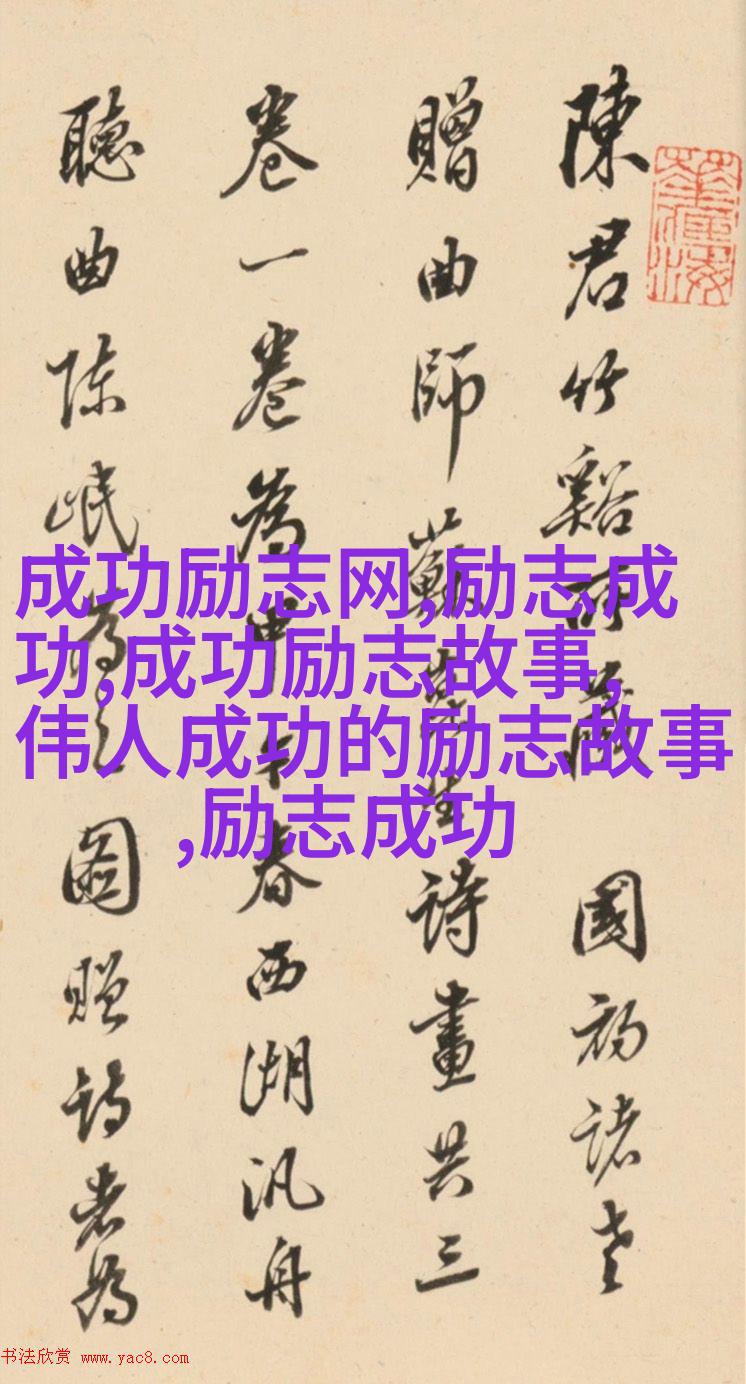 陳君竹谿所藏 國初諸老
贈曲師蘇崑生詩畫共三
卷一卷為甲午春西湖汎舟
聽曲陳岷為之圖贈詩者為
成功励志网,励志成
功,成功励志故事,
伟人成功的励志故事
,励志成功
书法欣赏 www.yac8.com